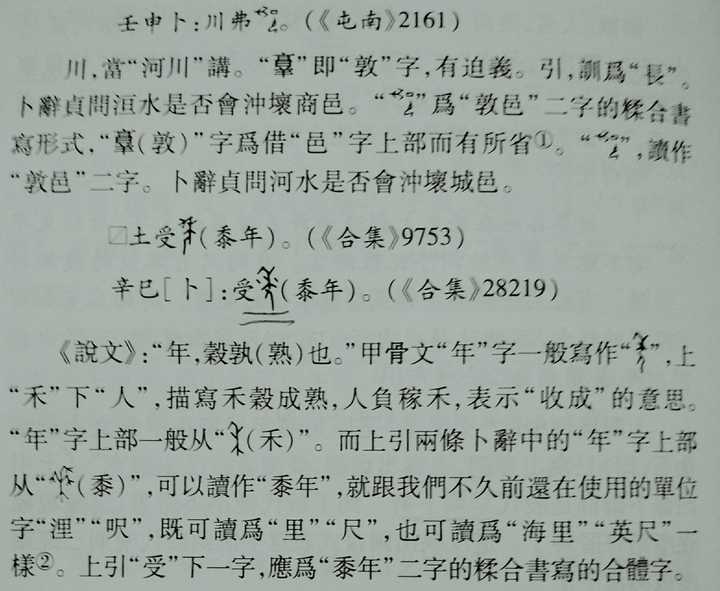 壬申卜:川弗。(《屯南》2161)
川,當“河川”講。“𦎧”即“敦”字,有迫義。引,訓爲“長”。
卜辭貞問洹水是否會沖壞商邑。“”爲“敦邑”二字的糅合書
寫形式,“𦎧(敦)”字爲借“邑”字上部而有所省①。“”,讀作
“敦邑”二字。卜辭貞問河水是否會沖壞城邑。
□土受(黍年)。(《合集》9753)
辛巳[卜]:受(黍年)。(《合集》28219)
《説文》:“年,穀孰(熟)也。”甲骨文“年”字一般寫作“”,上
“禾”下“人”,描寫禾穀成熟,人負稼禾,表示“收成”的意思。
“年”字上部一般从“(禾)”。而上引兩條卜辭中的“年”字上部
从“(黍)”,可以讀作“黍年”,就跟我們不久前還在使用的單位
字“浬”“呎”,既可讀爲“里”“尺”,也可讀爲“海里”“英尺”一
樣②。上引“受”下一字,應爲“黍年”二字的糅合書寫的合體字。